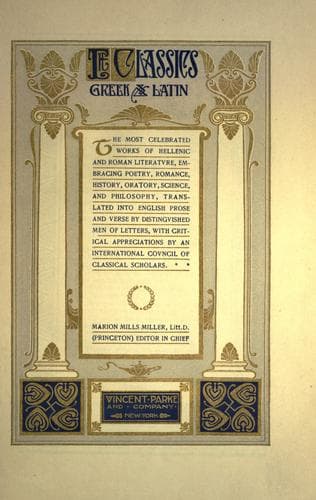 THE CLASSICS
GREEK & LATIN
THE MOST CELEBRATED
WORKS OF HELLENIC
AND ROMAN LITERATVRE, EM-
BRACING POETRY, ROMANCE,
HISTORY, ORATORY, SCIENCE,
AND PHILOSOPHY, TRANS-
LATED INTO ENGLISH PROSE
AND VERSE BY DISTINGVISHED
MEN OF LETTERS, WITH CRIT-
ICAL APPRECIATIONS BY AN
INTERNATIONAL COVNCIL OF
CLASSICAL SCHOLARS. * *
MARION MILLS MILLER, Litt.D.
(PRINCETON) EDITOR IN CHIEF
VINCENT·PARKE
AND·COMPANY·
·NEW YORK·